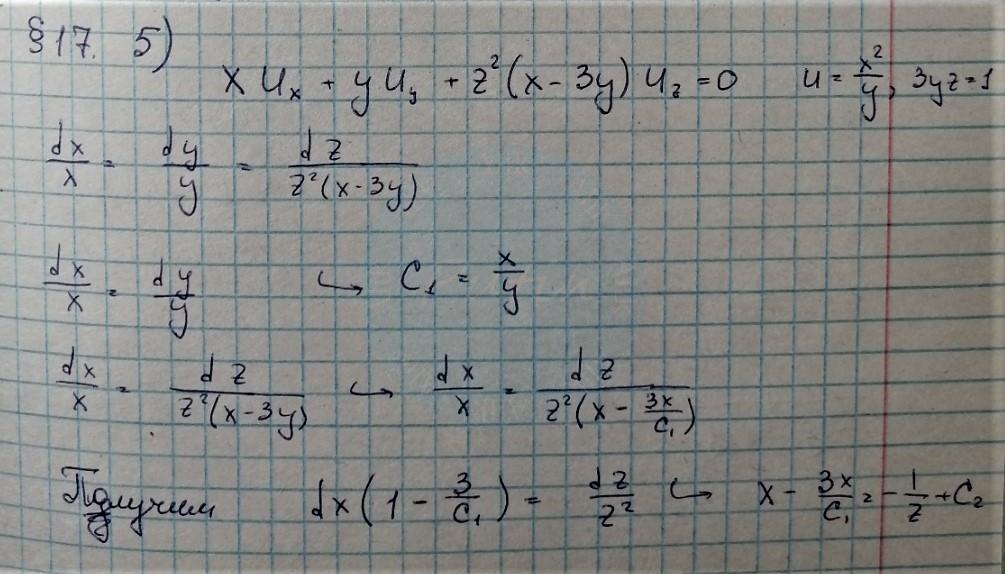 § 17. 5)
x u_x + y u_y + z²(x - 3y) u_z = 0   u = x²/y, 3yz = 1
dx/x = dy/y = dz/(z²(x - 3y))
dx/x = dy/y ↪ C₁ = x/y
dx/x = dz/(z²(x - 3y)) ↪ dx/x = dz/(z²(x - 3x/C₁))
Получим dx(1 - 3/C₁) = dz/z² ↪ x - 3x/C₁ = -1/z + C₂